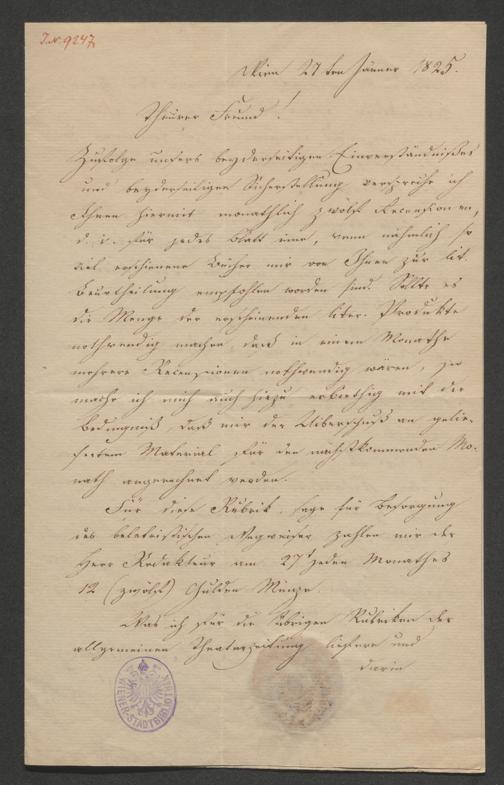 I.N. 9247
Wien 27ten Jänner 1825.
Theurer Freund!
Zufolge unsers beyderseitigen Einverständnißes
und beyderseitigen Sicherstellung verspreche ich
Ihnen hiermit monathlich zwölf Recensionen,
d. i. für jedes Blatt eine, wenn nähmlich so
viel erschienene Bücher mir von Ihnen zur lit.
Beurtheilung empfohlen worden sind. Sollte es
die Menge der erscheinenden liter. Produkte
nothwendig machen, daß in einem Monathe
mehrere Recensionen nothwendig wären, so
mache ich mich auch hiezu erbiethig mit der
Bedingniß, daß mir der Uiberschuß an gelie-
fertem Material für den nächstkommenden Mo-
nath angerechnet werden.
Für diese Rubrik, sage für Besorgung
des beletristischen Wegweiser zahlen mir der
Herr Redakteur am 27t jeden Monathes
12 (zwölf) Gulden Münze.
Was ich für die übrigen Rubriken der
allgemeinen Theaterzeitung liefere und
darin
WIENER-STADTBIBLIOTHEK